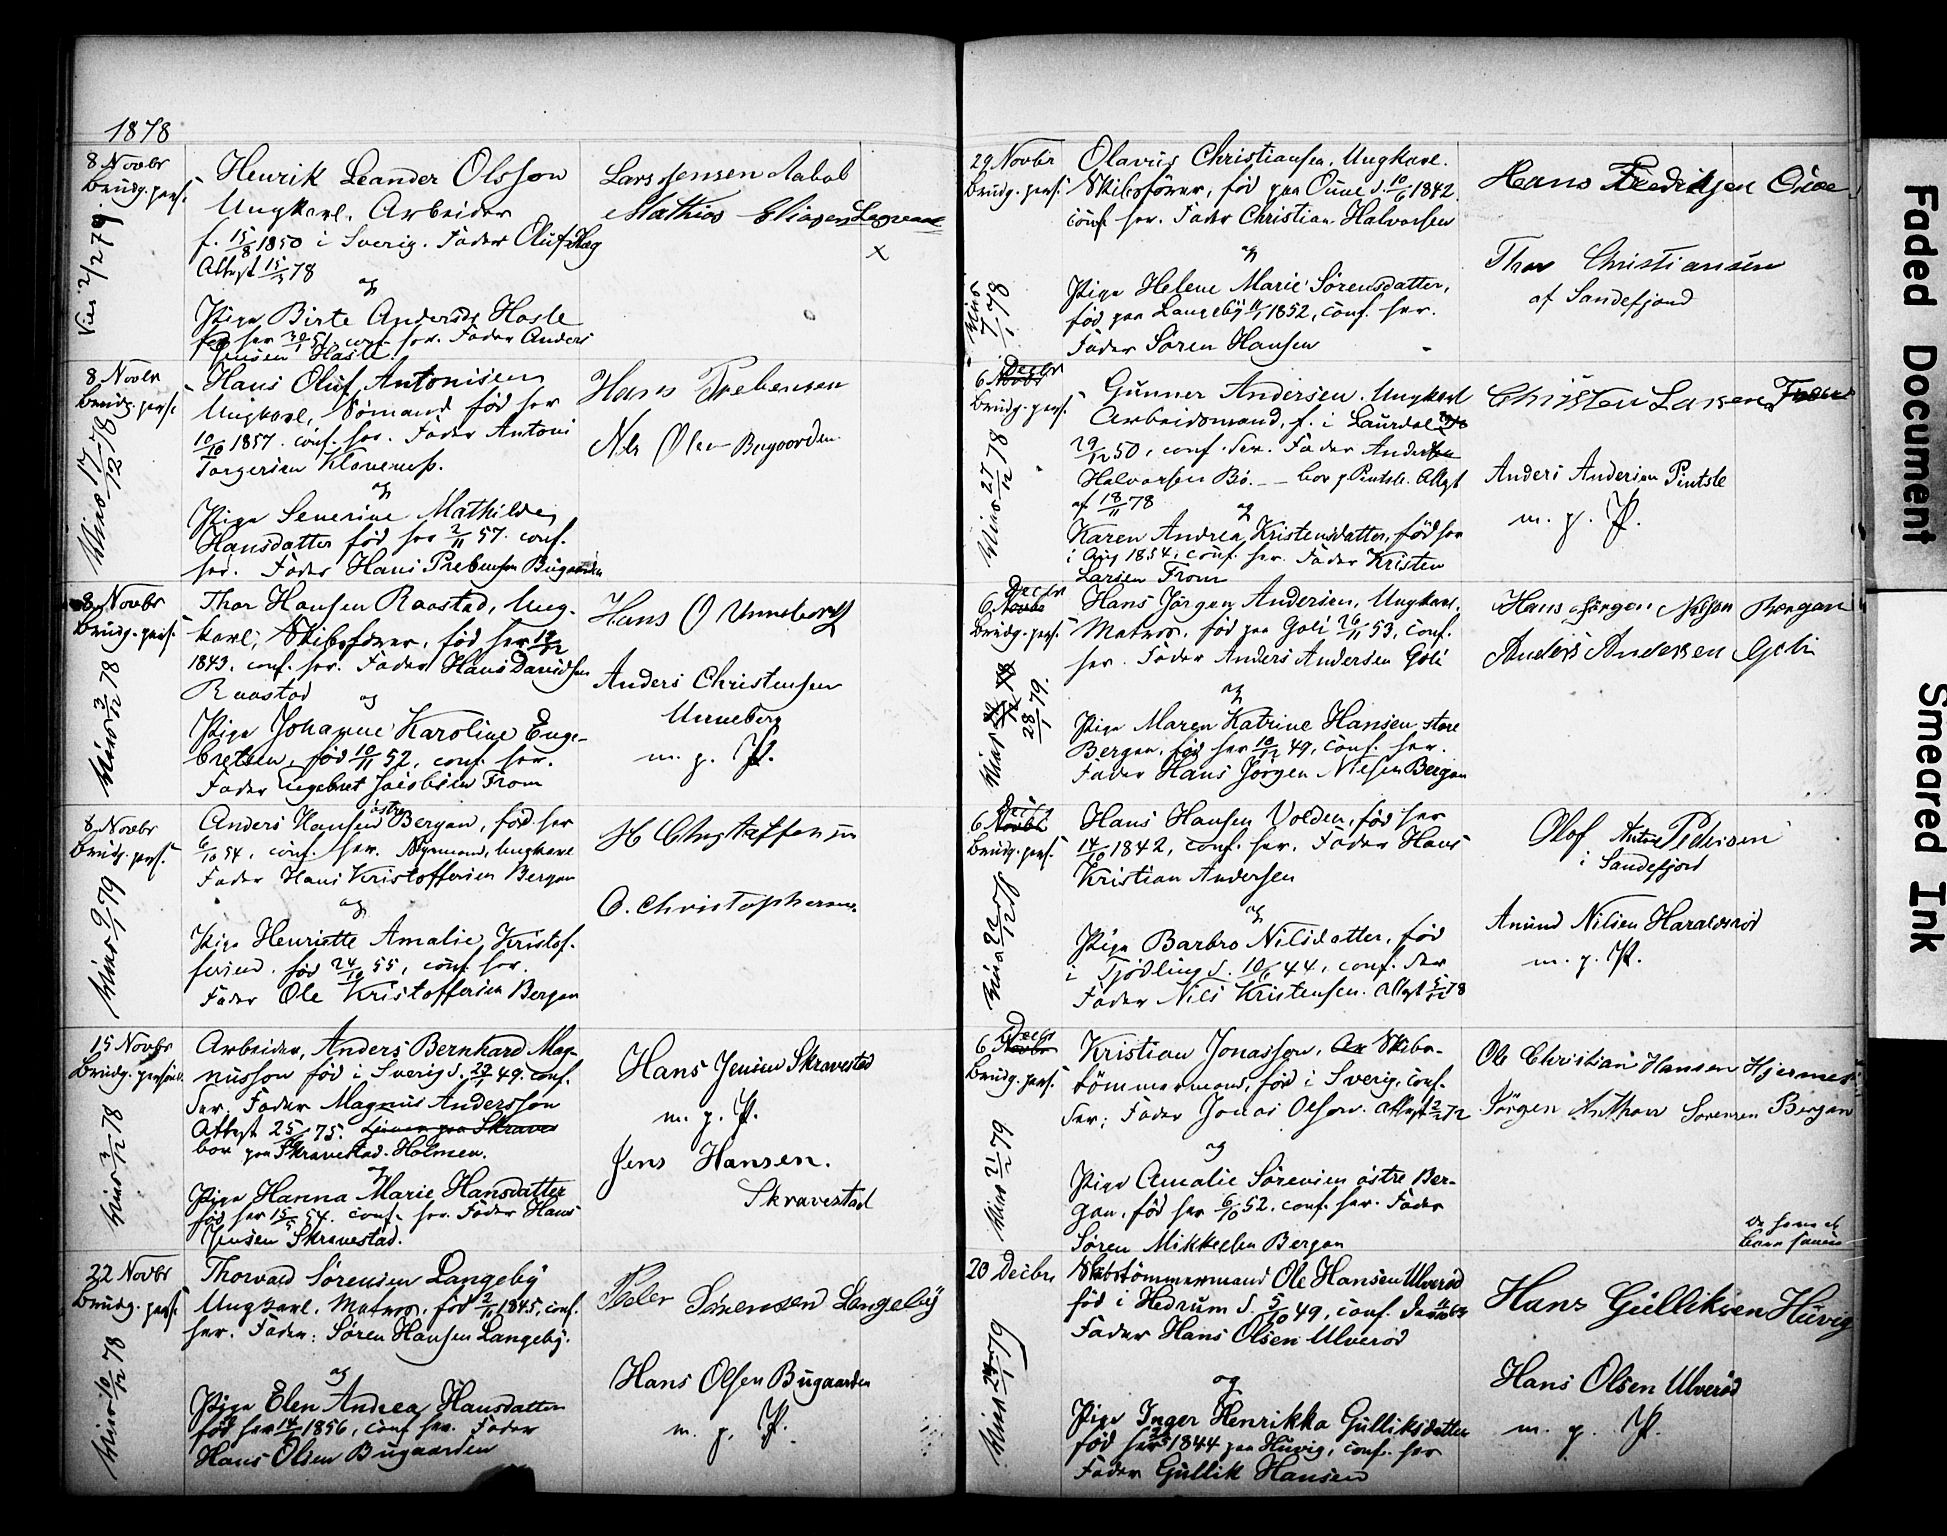 1878
8 Novbr
Brudg. pers.
Viet 2/2 79.
Henrik Leander Olsson
Ungkarl. Arbeider
f. 15/8 1850 i Sverig. Fader Oluf
Attest 15/ 78
og
Pige Birte Andersdr Hasle
fød her 30/ 51, conf. her. Fader Anders
Jensen Hasle.
Lars Jensen Aabol
Mathias
x
8 Novbr
Brudg. pers.
Viet 17/12 78
Hans Oluf Antonisen
Ungkarl, Sømand fød her
10/10 1857. conf. her. Fader Antoni
Torgersen Klavenæss.
og
Pige Severine Mathilde
Hansdatter fød her 2/11 57. conf.
her. Fader Hans Prebensen Bugaarden
Hans Prebensen
Nils Olsen Bugaarden
8 Novbr
Brudg. pers.
Viet 3/12 78
Thor Hansen Raastad, Ung-
karl, Skibsfører, fød her
1843, conf. her. Fader Hans Davidsen
Raastad og
Pige Johanne Karoline Enge-
bretsen, fød 10/11 52, conf. her.
Fader Engebret Jacobsen From
Hans O Unneberg
Anders Christensen
Unneberg
m. p. P.
8 Novbr
Brudg. pers.
Viet 9/1 79
Anders Hansen østre Bergan, fød her
6/10 54, conf. her. Styrmand, Ungkarl
Fader Hans Kristoffersen Bergan
og
Pige Henriette Amalie Kristof-
fersend. fød 24/10 55, conf. her.
Fader Ole Kristoffersen Bergan
H Christaffersen
O. Christophersen
15 Novbr
Brudg. personl.
Viet 3/12 78
Arbeider, Anders Bernhard Mag-
nusson fød i Sverig d. 29/1 49. conf.
der. Fader Magnus Andersson
Attest 25/ 75.
bor paa Skravestad-Holmen.
og
Pige Hanna Marie Hansdatter
fød her 15/5 54. conf. her. Fader Hans
Jensen Skravestad.
Hans Jensen Skravestad
m. p. P.
Jens Hansen.
Skravestad
22 Novbr
Brudg. pers.
Viet 10/12 78
Thorvald Sørensen Langeby
Ungkarl. Matros, fød 2/ 1845, conf.
her. Fader: Søren Hansen Langeby.
og
Pige Elen Andrea Hansdatter
fød her 14/ 1856, conf her. Fader
Hans Olsen Bugaarden
Peder Sørensen Langeby
Hans Olsen Bugaarden
m. p. P.
29 Novbr
Brudg. pers.
Viet 7/1 78
Olavus Christiansen, Ungkarl.
Skibsfører, fød paa d. 10/6 1842.
conf her. Fader Christian Halvorsen
og
Pige Helene Marie Sørensdatter,
fød paa Langeby 1852, conf. her.
Fader Søren Hansen
Hans Fredriksen
Thor Christiansen
af Sandefjord
6 Decbr
Brudg. pers.
Viet 27/12 78
Gunner Andersen. Ungkarl
Arbeidsmand, f. i Laurdal
29/12 50, conf. der. Fader Anders
Halvorsen Bø. bor p Pintsle. Attest
af 18/11 78
og
Karen Andrea Kristensdatter, fød her
i Aug 1854, conf her. Fader Kristen
Larsen From
Christen Larsen From
Anders Andersen Pintsle
m. p. P.
6 Decbr
Brudg. pers.
Viet 28/1 79.
Hans Jørgen Andersen, Ungkarl.
Matros, fød paa Goli 26/11 53, conf.
her. Fader Anders Andersen Goli
og
Pige Maren Katrine Hansen store
Bergan, fød her 10/12 49, conf. her.
Fader Hans Jørgen Nilsen Bergan
Hans Jørgen Nilsen Bergan
Anders Andersen Goli
6 Decbr
Brudg. pers.
Viet 22/12 78
Hans Hansen Volden, fød her
14/10 1842, conf. her. Fader Hans
Kristian Andersen
og
Pige Barbro Nilsdatter, fød
i Tjødling d. 10/6 44, conf. der
Fader Nils Kristensen. Attest 78
Olof Anton Pedersen
i Sandefjord
Anund Nilsen Haraldsrød
m. p. P.
6 Decbr
Brudg. pers.
Viet 21/2 79
Kristian Jonassen, Skibs-
tømmermand, fød i Sverig, conf.
der. Fader Jonas Olsson. Attest 72
og
Pige Amalie Sørensen østre Ber-
gan, fød her 6/10 52, conf. her. Fader
Søren Mikkelsen Bergan
Ole Christian Hansen
Jørgen Anthon Sørensen Bergan
20 Decbr
Viet 79
Skibstømmermand Ole Hansen Ulverød
fød i Hedrum d. 5/10 49, conf. der
Fader Hans Olsen Ulverød
og
Pige Inger Henrikka Gulliksdatter
fød her 1844 paa Huvig, conf. her
Fader Gullik Hansen
Hans Gulliksen Huvig
Hans Olsen Ulverød
m. p. P.
Faded Document
Smeared Ink